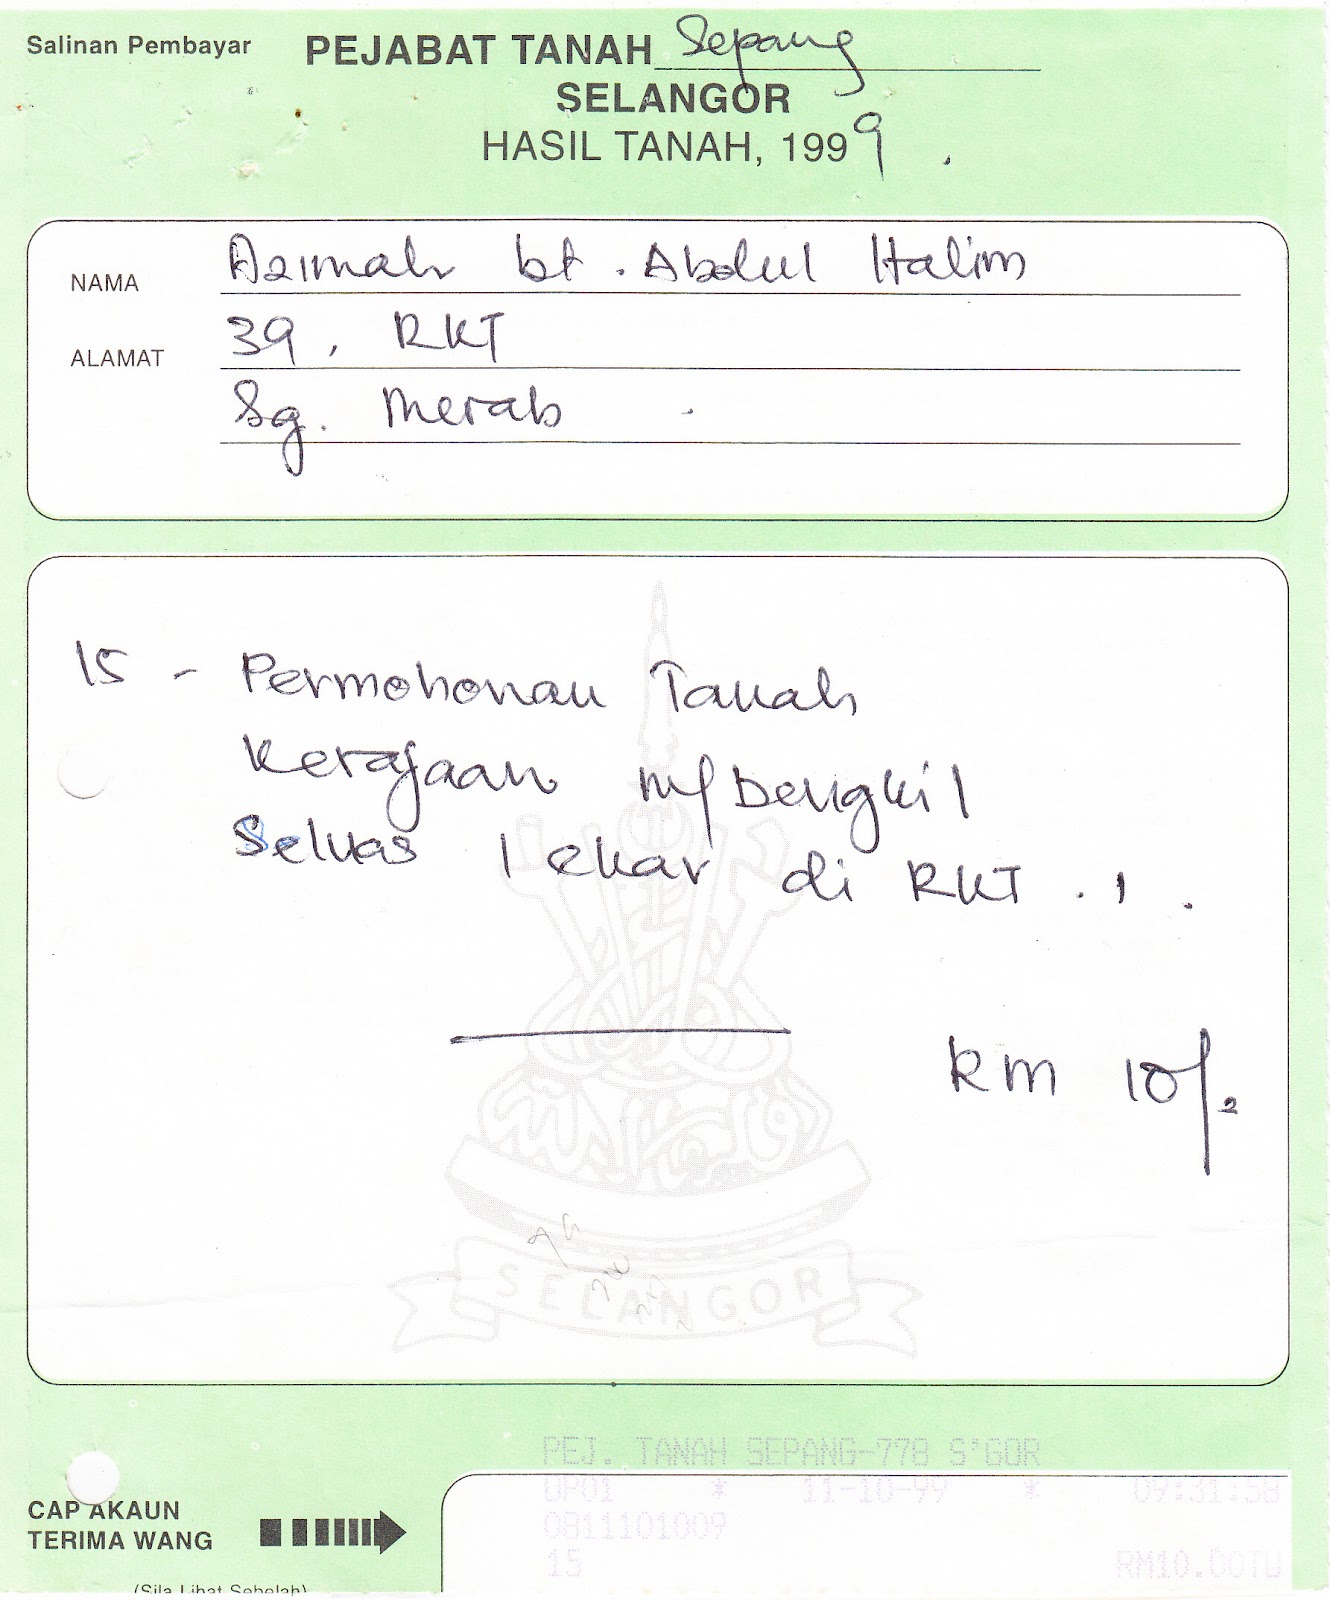 Salinan Pembayar
PEJABAT TANAH Sepang
SELANGOR
HASIL TANAH, 1999.
NAMA Azimah bt. Abdul Halim
ALAMAT 39, RKT
Sg. Merab
15 - Permohonan Tanah
Kerajaan M/Dengkil
Seluas 1 ekar di RKT
RM 10/-
SELANGOR
PEJ. TANAH SEPANG-778 S'GOR
UP01 * 11-10-99 * 09:31:58
0811101009
15 RM10.00TU
CAP AKAUN
TERIMA WANG
(Sila Lihat Sebelah)